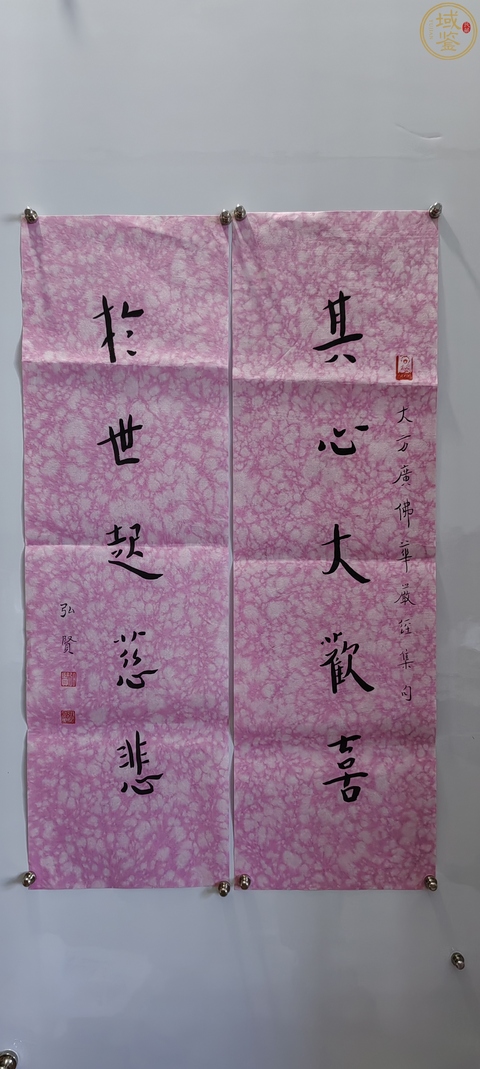 域鉴
大方廣佛華嚴經集句
其心大歡喜
於世起慈悲
弘賢